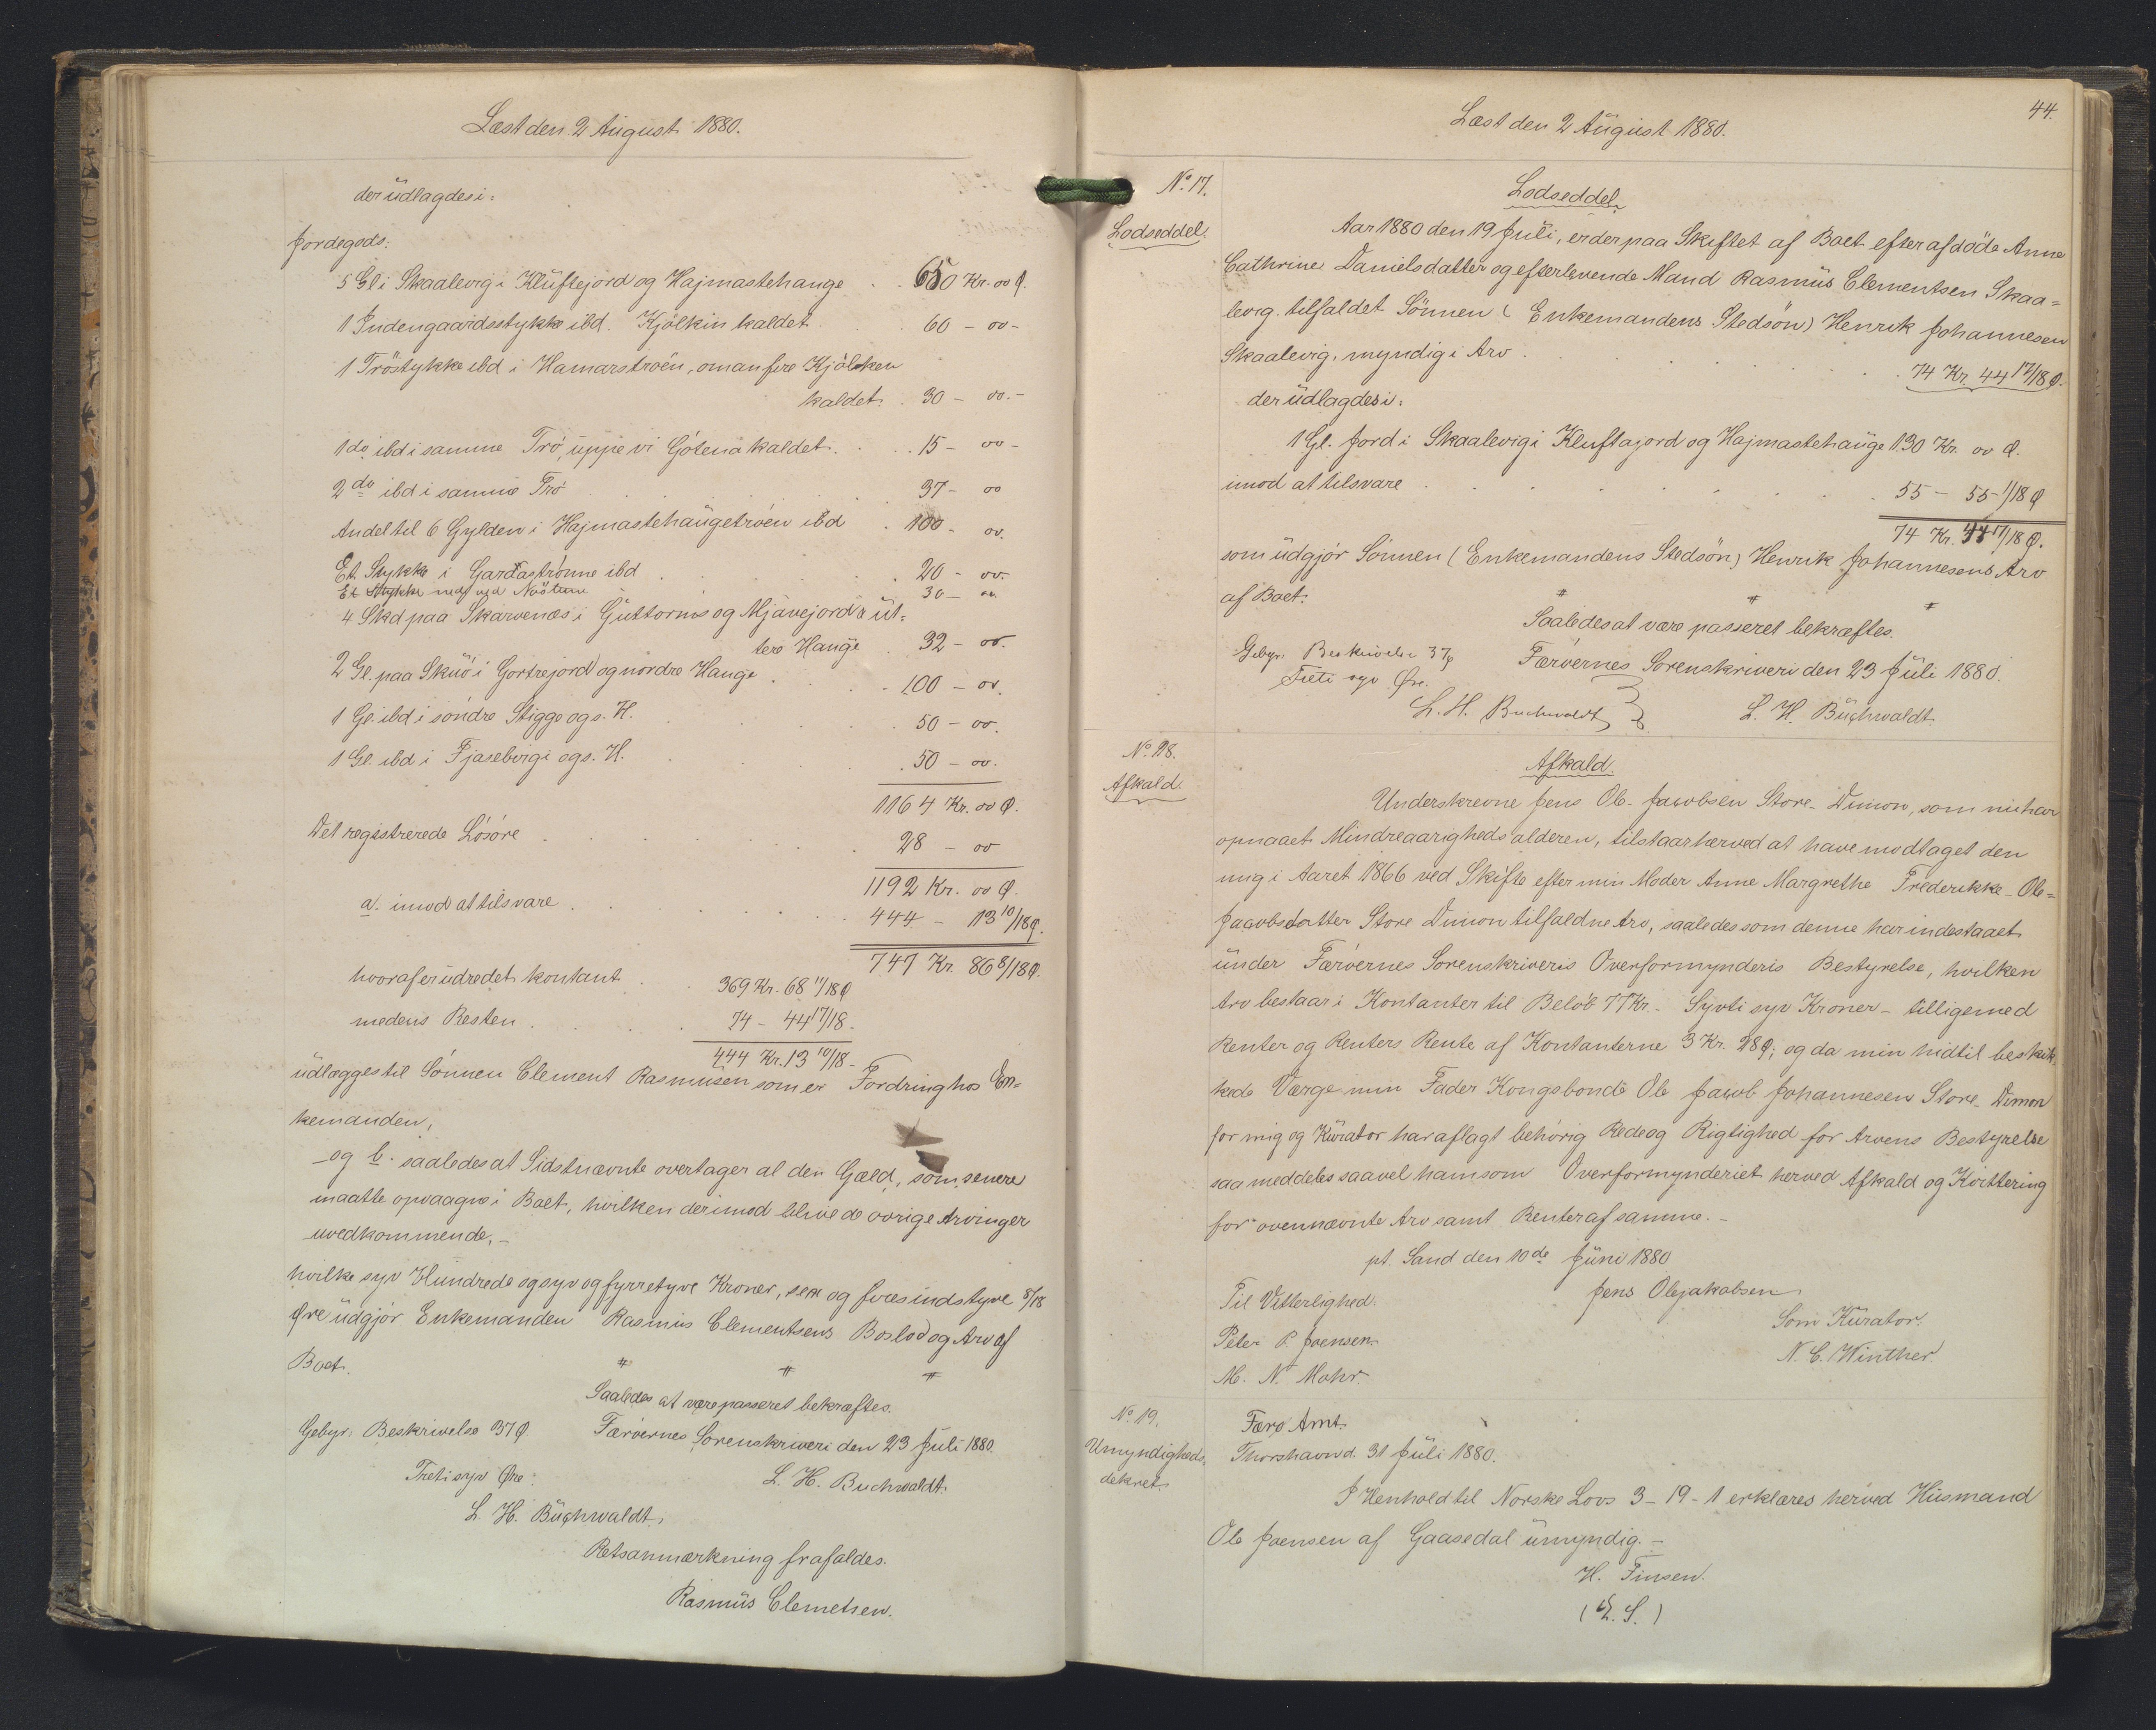 Læst den 2 August 1880.
der udlagdes i:
Jordegods:
5 Gl i Skaalevig i Kluftejord og Hajmastehauge . . 650 Kr. oo Ø.
1 Indengaardsstykke ibd. Kjölkin kaldet . . 60 – oo –
1 Tröstykke ibd i Hamarstroén, oman fire Kjölken
kaldet . 30 – oo. –
1 do ibd i samme Trö, uppe vi Götena kaldet . . 15 – oo –
2 do ibd i samme Trö . . . 37 – oo
Andel til 6 Gylden i Hajmastehaugetröen ibd . 100 – oo.
Et Stykke i Gardaströnne ibd . . . 20 – oo.
Et Stykke ned ved Nösterne 30 – oo.
4 Skd paa Skarvenæs i Guttorms og Mjavejord a üt=
tere Hauge . 32 – oo.
2 Gl. paa Skuö i Gortrejord og nordre Hauge . . 100 – oo.
1 Gl. ibd i söndre Stigge og s. H. . . 50 – oo.
1 Gl. ibd i Fjasebirgi og s. H. . . 50 – oo.
1164 Kr. oo Ø.
Det registrerede Lösöre . . . 28 – oo
1192 Kr. oo Ø.
a. imod at tilsvare . . . 444 – 13 10/18 Ø.
747 Kr. 86 8/18 Ø.
hvoraf er udredet kontant . . 369 Kr. 68 11/18 Ø
medens Resten . . . 74 – 44 17/18 .
444 Kr. 13 10/18 –
udlægges til Sönnen Clement Rasmusen som er Fordring hos En=
kemanden,
– og b. saaledes at Sidstnævnte overtager al den Gæld, som senere
maatte opvaagne i Boet, hvilken derimod blive de övrige Arvinger
uvedkommende, –
hvilke syv Hundrede og syv og fyrretyve Kroner, sex og firesindstyve 8/18
Øre udgjör Enkemanden Rasmus Clementsens Boslod og Arv af
Boet.
Saaledes at være passeret bekræftes.
Gebyr: Beskrivelse 37 Ø Færöernes Sorenskriveri den 23 Juli 1880.
Tretisyv Øre. L. H. Buchwaldt.
L. H. Buchwaldt.
Retsanmærkning frafaldes.
Rasmus Clemetsen.
44.
Læst den 2 August 1880.
No. 17.
Lodseddel.
Lodseddel.
Aar 1880 den 19 Juli, er der paa Skiftet af Boet efter afdöde Anne
Cathrine Danielsdatter og efterlevende Mand Rasmus Clementsen Skaa=
levig, tilfaldet Sönnen (Enkemandens Stedsön) Henrik Johannesen
Skaalevig, myndig i Arv . . . 74 Kr. 44 17/18 Ø.
der udlagdes i:
1 Gl. Jord i Skaalevig i Kluftajord og Hajmastehauge 130 Kr. oo Ø.
imod at tilsvare . . . 55 – 55 1/18 Ø
74 Kr. 44 17/18 Ø.
som udgjör Sönnen (Enkemandens Stedsön) Henrik Johannesens Arv
af Boet.
Saaledes at være passeret bekræftes.
Gebyr: Beskrivelse 37 Ø Færöernes Sorenskriveri den 23 Juli 1880.
Tieti syv Øre.
L. H. Buchwaldt L. H. Buchwaldt
No. 18.
Afkald.
Afkald.
Underskrevne Jens Ole-Jacobsen Store-Dimon, som nu har
opnaaet Mindreaarigheds alderen, tilstaar herved at have modtaget den
mig i Aaret 1866 ved Skifte efter min Moder Anne Margrethe Frederikke Ole=
Jacobsdatter Store Dimon tilfaldne Arv, saaledes som denne har indestaaet
under Færöernes Sorenskriveris Overformynderis Bestyrelse, hvilken
Arv bestaar i Kontanter til Belöb 77 Kr. – Syvti syv Kroner – tilligemed
Renter og Renters Rente af Kontanterne 3 Kr. 28 Ø; og da min hidtil beskik
kede Værge min Fader Kongsbonde Ole Jacob Johannesen Store-Dimon
for mig og Kurator har aflagt behörig Rede og Rigtighed for Arvens Bestyrelse
saa meddeles saavel ham som Overformynderiet herved Afkald og Kvittering
for ovennævnte Arv samt Renter af samme. –
pt. Sand den 10de Juni 1880
Til Vitterlighed: Jens Olejakobsen
Peter P. Joensen. Som Kurator.
M. N. Mohr. N. C. Winther.
No. 19.
Umyndigheds
dekret
Færö Amt.
Thorshavn d. 31 Juli 1880.
I Henhold til Norske Lovs 3–19–1 erklæres herved Husmand
Ole Joensen af Gaasedal umyndig. –
H. Finsen.
(L. S.)